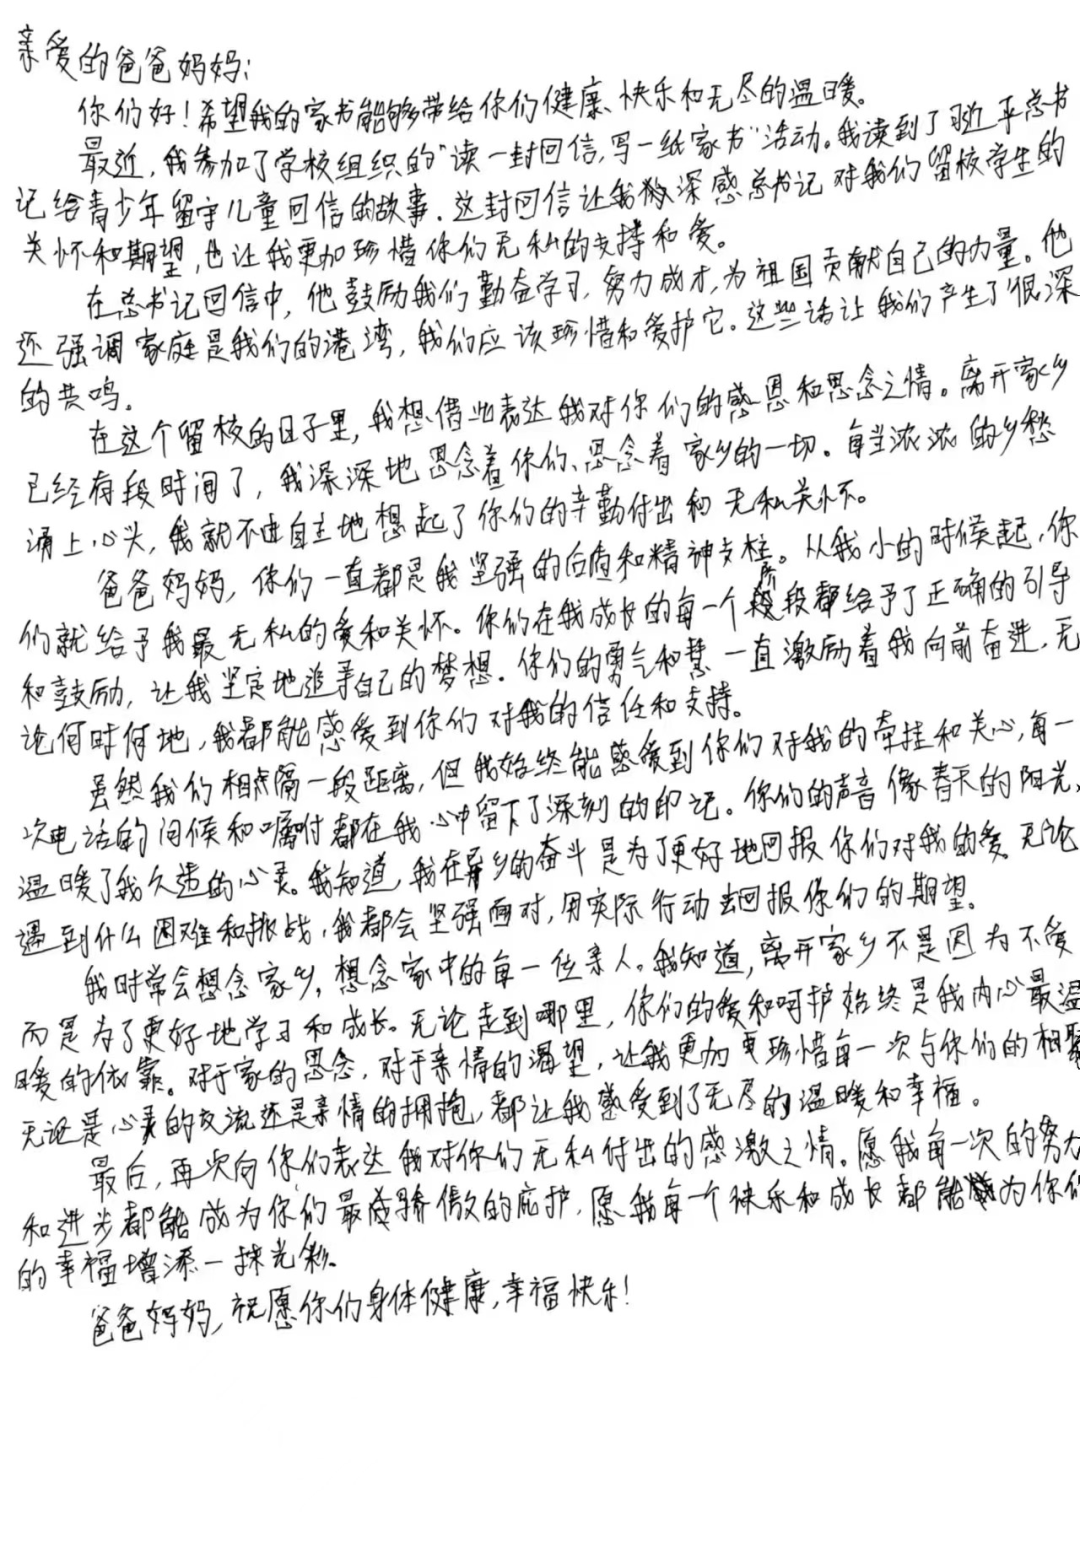 亲爱的爸爸妈妈:
你们好！希望我的家书能够带给你们健康、快乐和无尽的温暖。
最近，我参加了学校组织的“读一封回信，写一纸家书”活动。我读到了习近平总书
记给青少年留守儿童回信的故事。这封回信让我深深感总书记对我们留校学生的
关怀和期望，也让我更加珍惜你们无私的支持和爱。
在总书记回信中，他鼓励我们勤奋学习，努力成才，为祖国贡献自己的力量。他
还强调家庭是我们的港湾，我们应该珍惜和爱护它。这些话让我们产生了很深
的共鸣。
在这个留校的日子里，我想借此表达我对你们的感恩和思念之情。离开家乡
已经有段时间了，我深深地思念着你们、思念着家乡的一切。每当浓浓的乡愁
涌上心头，我就不由自主地想起了你们的辛勤付出和无私关怀。
爸爸妈妈，你们一直都是我坚强的后盾和精神支柱。从我小的时候起，你
们就给予我最无私的爱和关怀。你们在我成长的每一个阶段都给予了正确的引导
和鼓励，让我坚定地追寻自己的梦想。你们的勇气和慧一直激励着我向前奋进，无
论何时何地，我都能感受到你们对我的信任和支持。
虽然我们相隔一段距离，但我始终能感受到你们对我的牵挂和关心，每一
次电话的问候和嘱咐都在我心中留下了深刻的印记。你们的声音像春天的阳光，
温暖了我久违的心灵。我知道，我在异乡的奋斗是为了更好地回报你们对我的爱。无论
遇到什么困难和挑战，我都会坚强面对，用实际行动去回报你们的期望。
我时常会想念家乡，想念家中的每一位亲人。我知道，离开家乡不是因为不爱
而是为了更好地学习和成长。无论走到哪里，你们的爱和呵护始终是我内心最温
暖的依靠。对于家的思念，对于亲情的渴望，让我更加更珍惜每一次与你们的相聚
无论是心灵的交流还是亲情的拥抱，都让我感受到了无尽的温暖和幸福。
最后，再次向你们表达我对你们无私付出的感激之情。愿我每一次的努力
和进步都能成为你们最骄傲的庇护，愿我每一个快乐和成长都能为你们
的幸福增添一抹光彩。
爸爸妈妈，祝愿你们身体健康，幸福快乐！